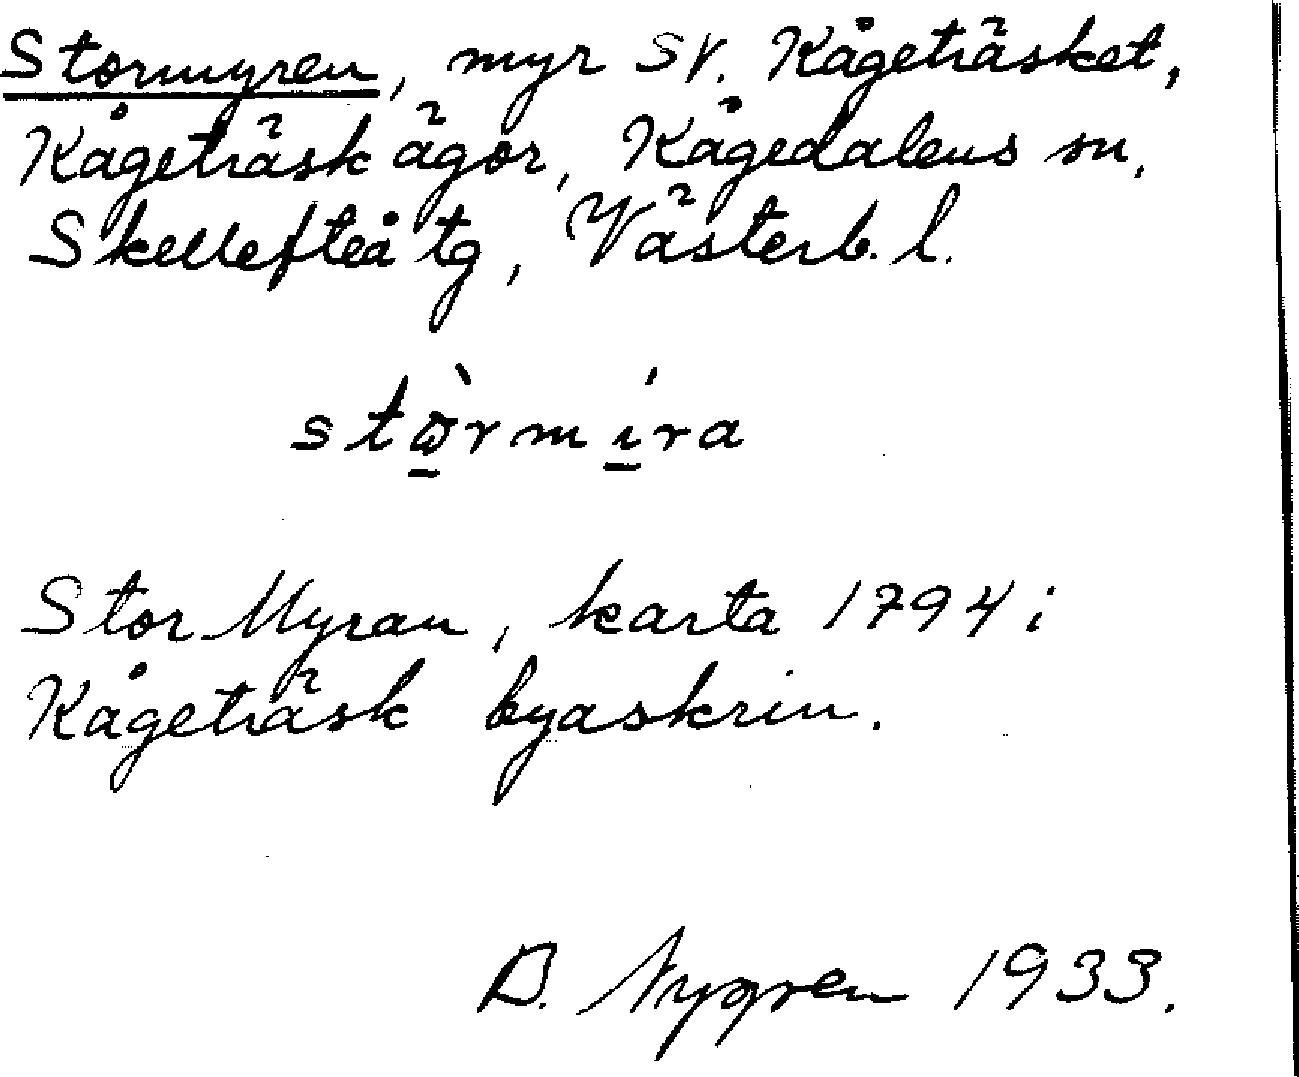 Stormyren, myr SV. Kågeträsket,
Kågeträsk ägor, Kågedalens sn,
Skellefteå tg, Västerb. l.
stὼ̲rmí̲ra
Stor Myran, karta 1794 i
Kågeträsk byaskrin.
B. Nygren 1933.